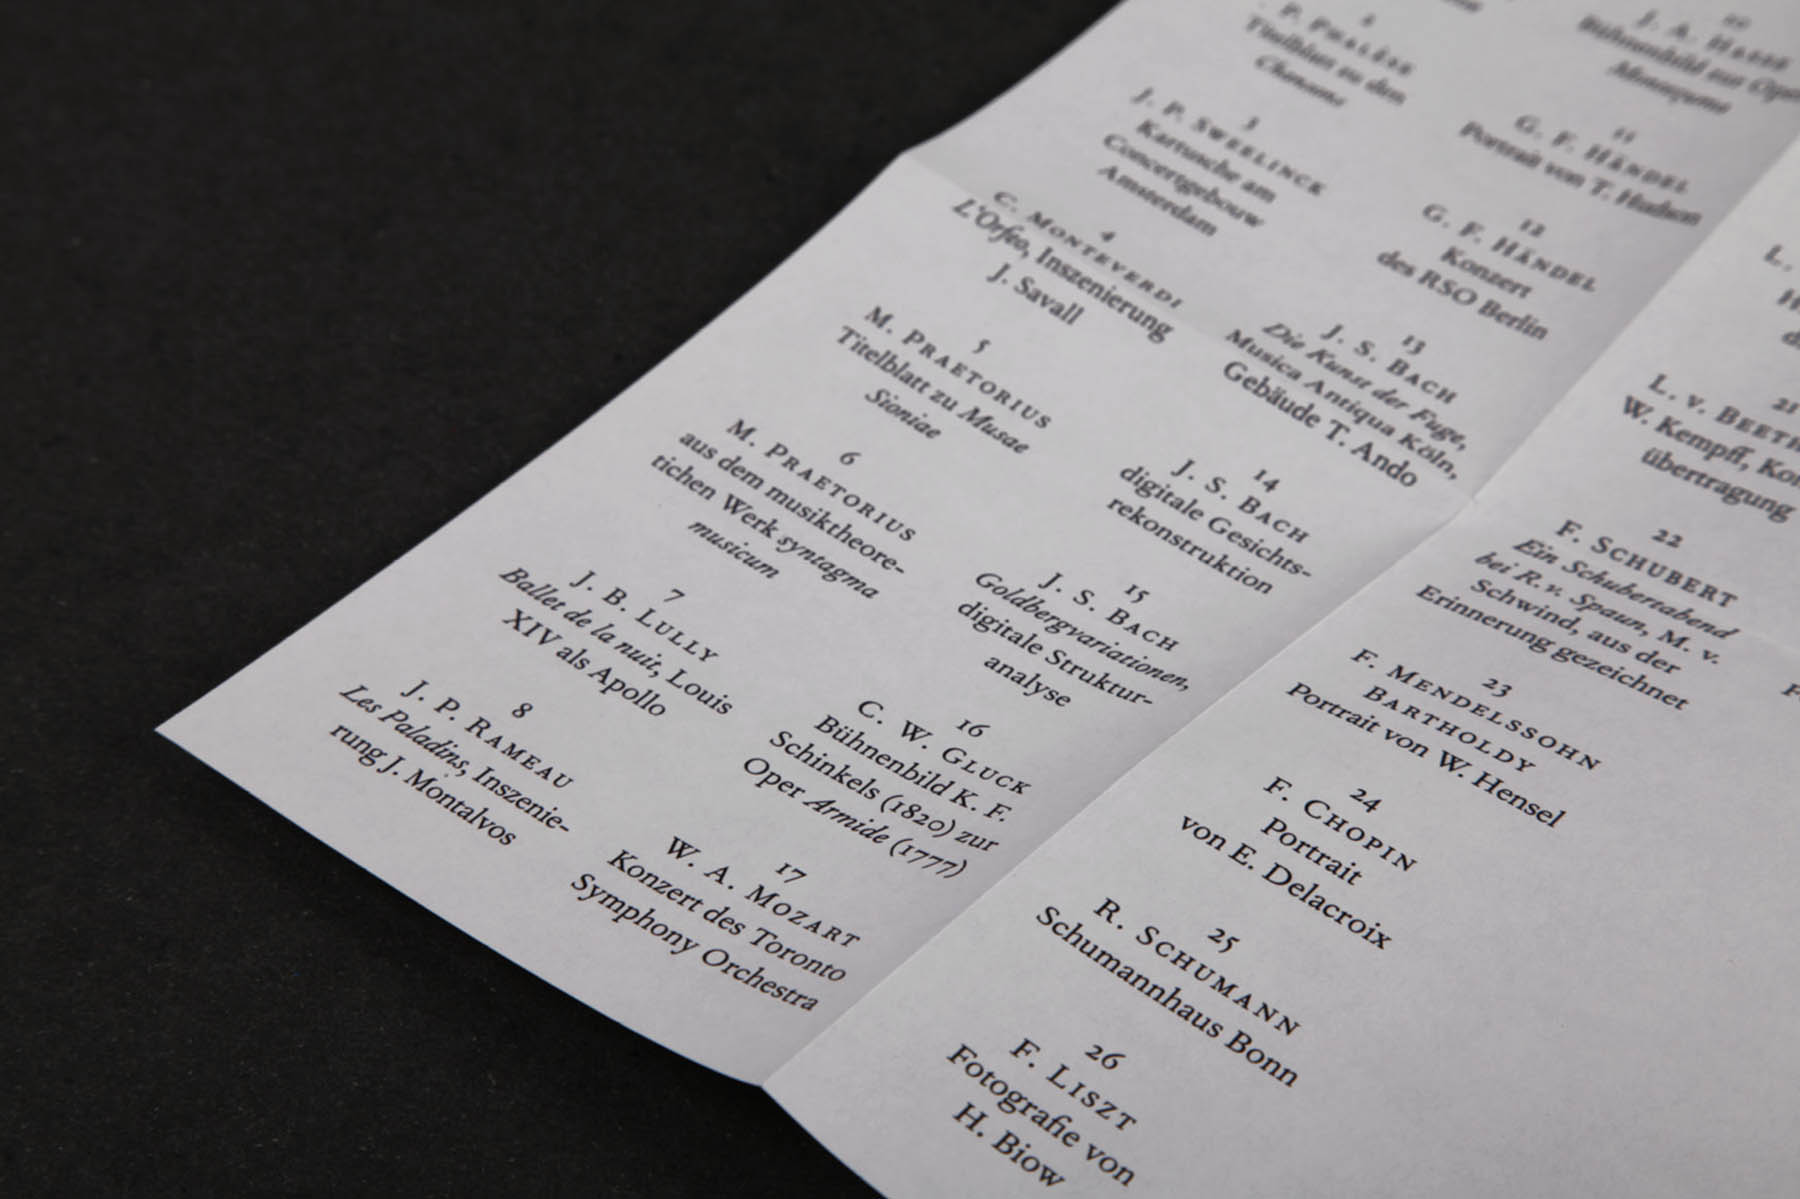 2
P. Phalèse
Titelblatt zu den
Chansons
3
J. P. Sweelinck
Kartusche am
Concertgebouw
Amsterdam
4
C. Monteverdi
L'Orfeo, Inszenierung
J. Savall
5
M. Praetorius
Titelblatt zu Musae
Sioniae
6
M. Praetorius
aus dem musiktheore-
tichen Werk syntagma
musicum
7
J. B. Lully
Ballet de la nuit, Louis
XIV als Apollo
8
J. P. Rameau
Les Paladins, Inszenie-
rung J. Montalvos
10
J. A. Hasse
Bühnenbild zur
11
G. F. Händel
Portrait von T. Hudson
12
G. F. Händel
Konzert
des RSO Berlin
13
J. S. Bach
Die Kunst der Fuge,
Musica Antiqua Köln,
Gebäude T. Ando
14
J. S. Bach
digitale Gesichts-
rekonstruktion
15
J. S. Bach
Goldbergvariationen,
digitale Struktur-
analyse
16
C. W. Gluck
Bühnenbild K. F.
Schinkels (1820) zur
Oper Armide (1777)
17
W. A. Mozart
Konzert des Toronto
Symphony Orchestra
L.
21
L. v. Beeth
W. Kempff, Kon
übertragung
22
F. Schubert
Ein Schubertabend
bei R.v. Spaun, M. v.
Schwind, aus der
Erinnerung gezeichnet
23
F. Mendelssohn
Bartholdy
Portrait von W. Hensel
24
F. Chopin
Portrait
von E. Delacroix
25
R. Schumann
Schumannhaus Bonn
26
F. Liszt
Fotografie von
H. Biow